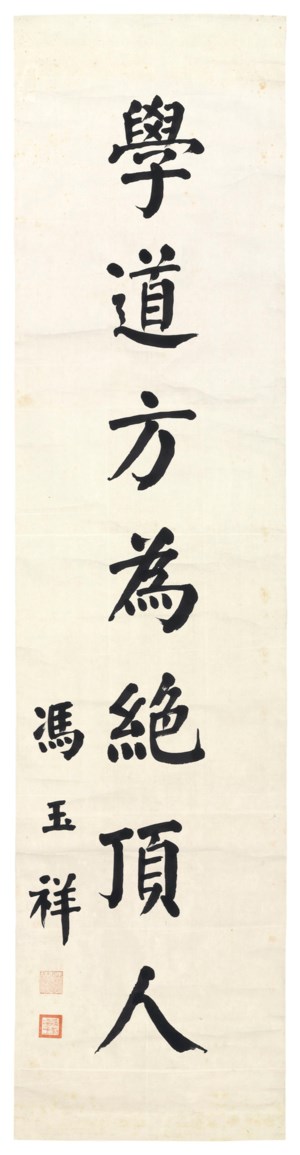 學道方為絕頂人
馮玉祥